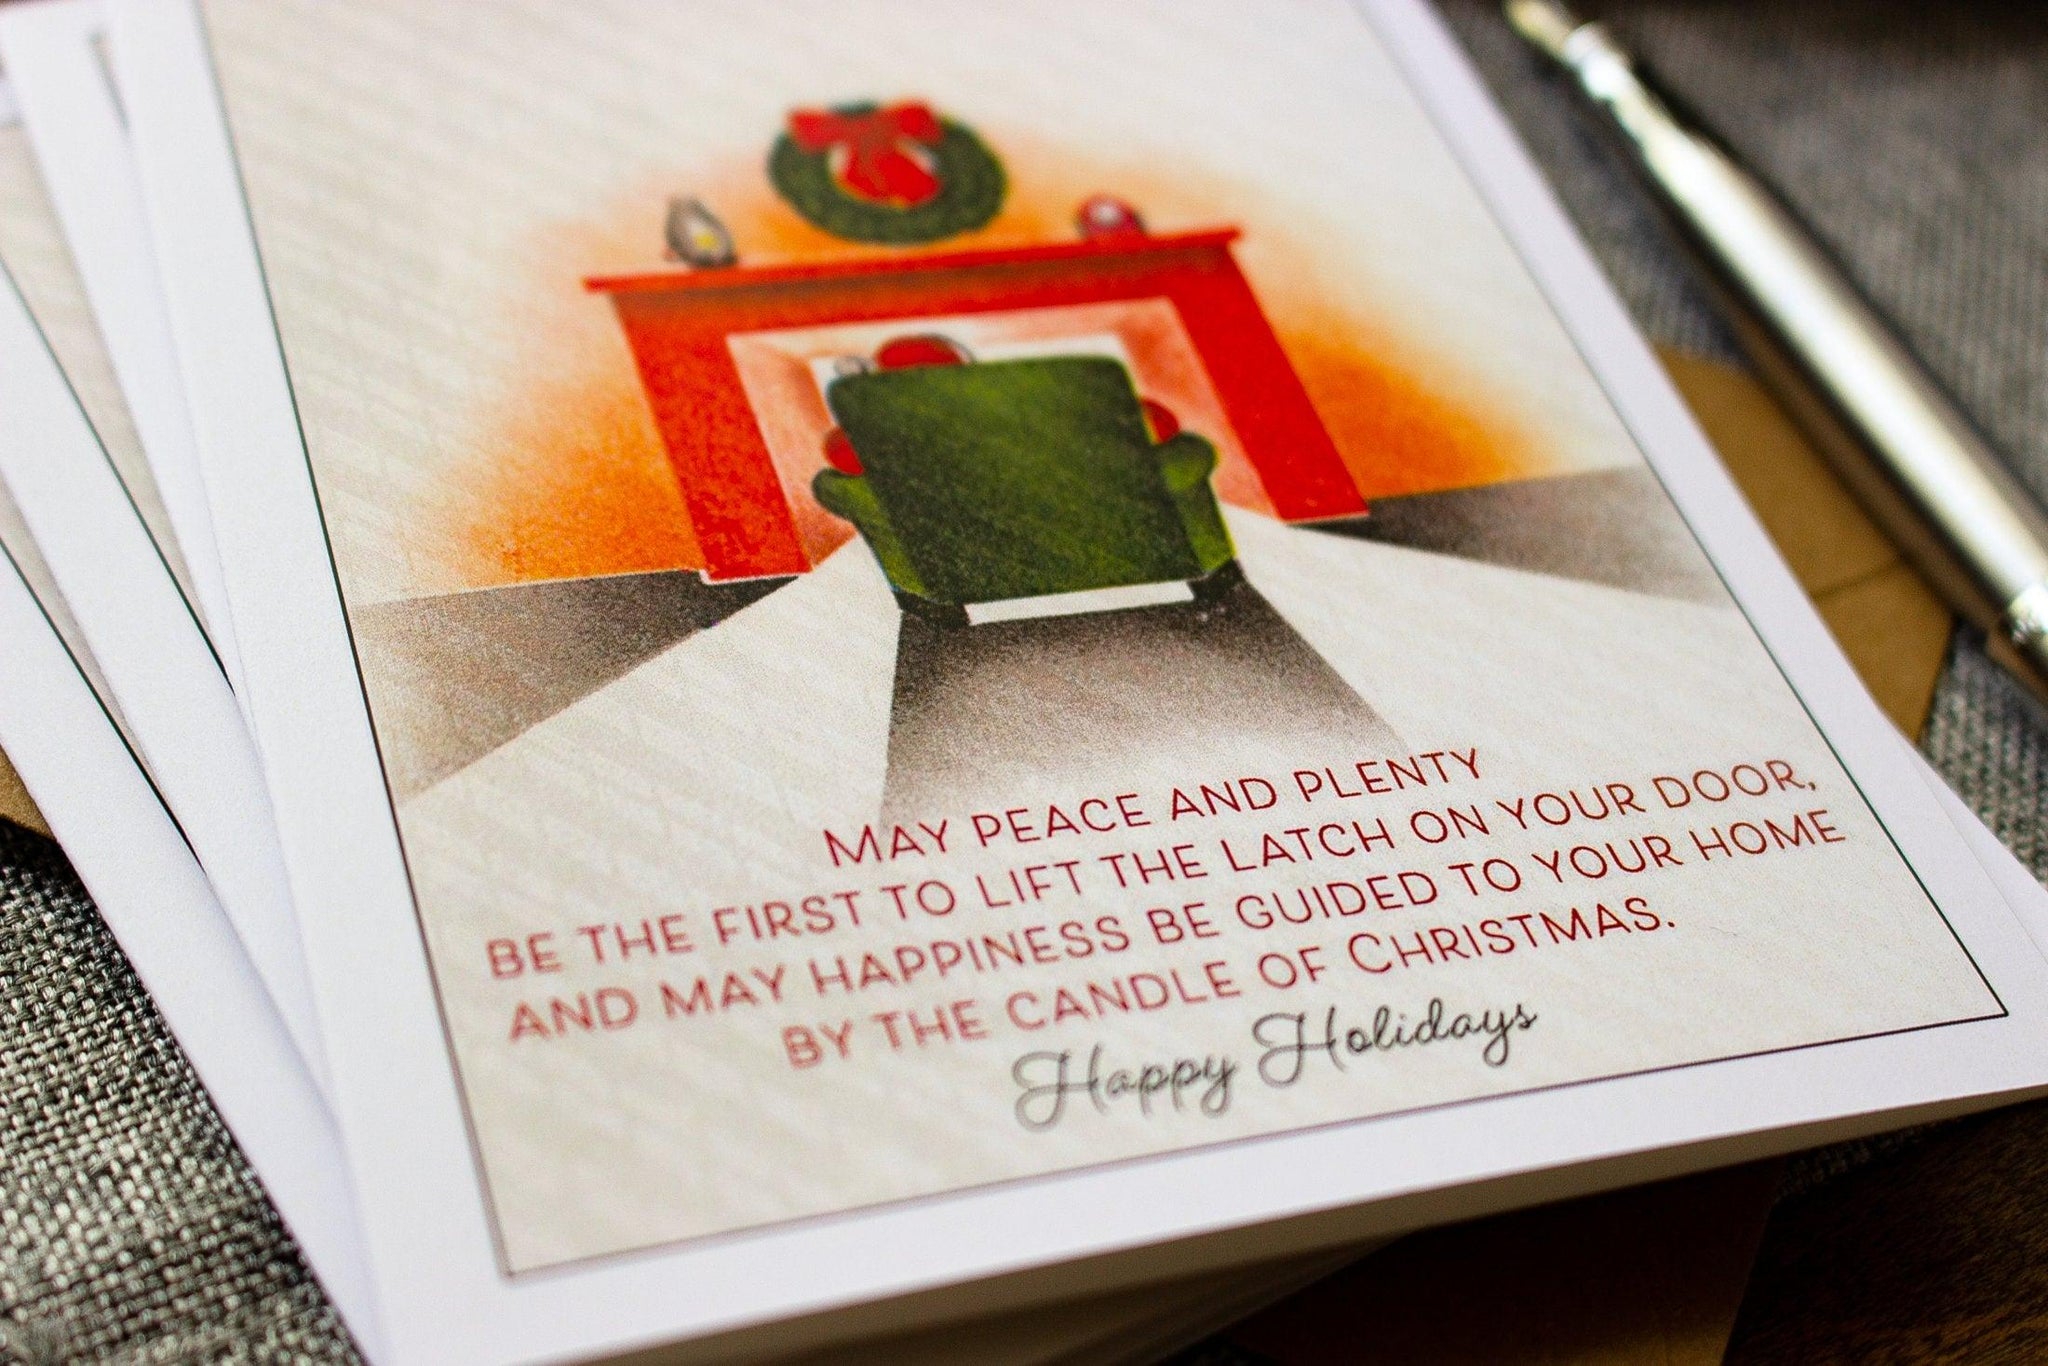 MAY PEACE AND PLENTY
BE THE FIRST TO LIFT THE LATCH ON YOUR DOOR,
AND MAY HAPPINESS BE GUIDED TO YOUR HOME
BY THE CANDLE OF CHRISTMAS.
Happy Holidays